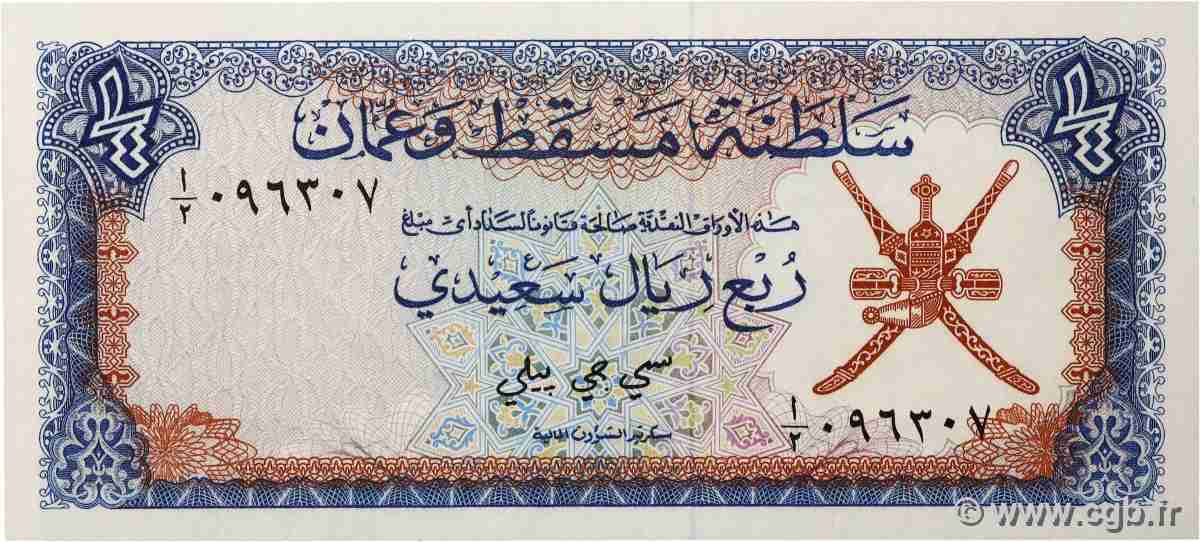 ١/٤ ١/٤
سلطنة مسقط وعمان
١/٢ ٠٩٦٣٠٧
هذه الأوراق النقدية صالحة قانونا لسداد أي مبلغ
ربع ريال سعيدي
سي جي بيلي
سكرتير الشؤون المالية
١/٢ ٠٩٦٣٠٧
© www.cgb.fr